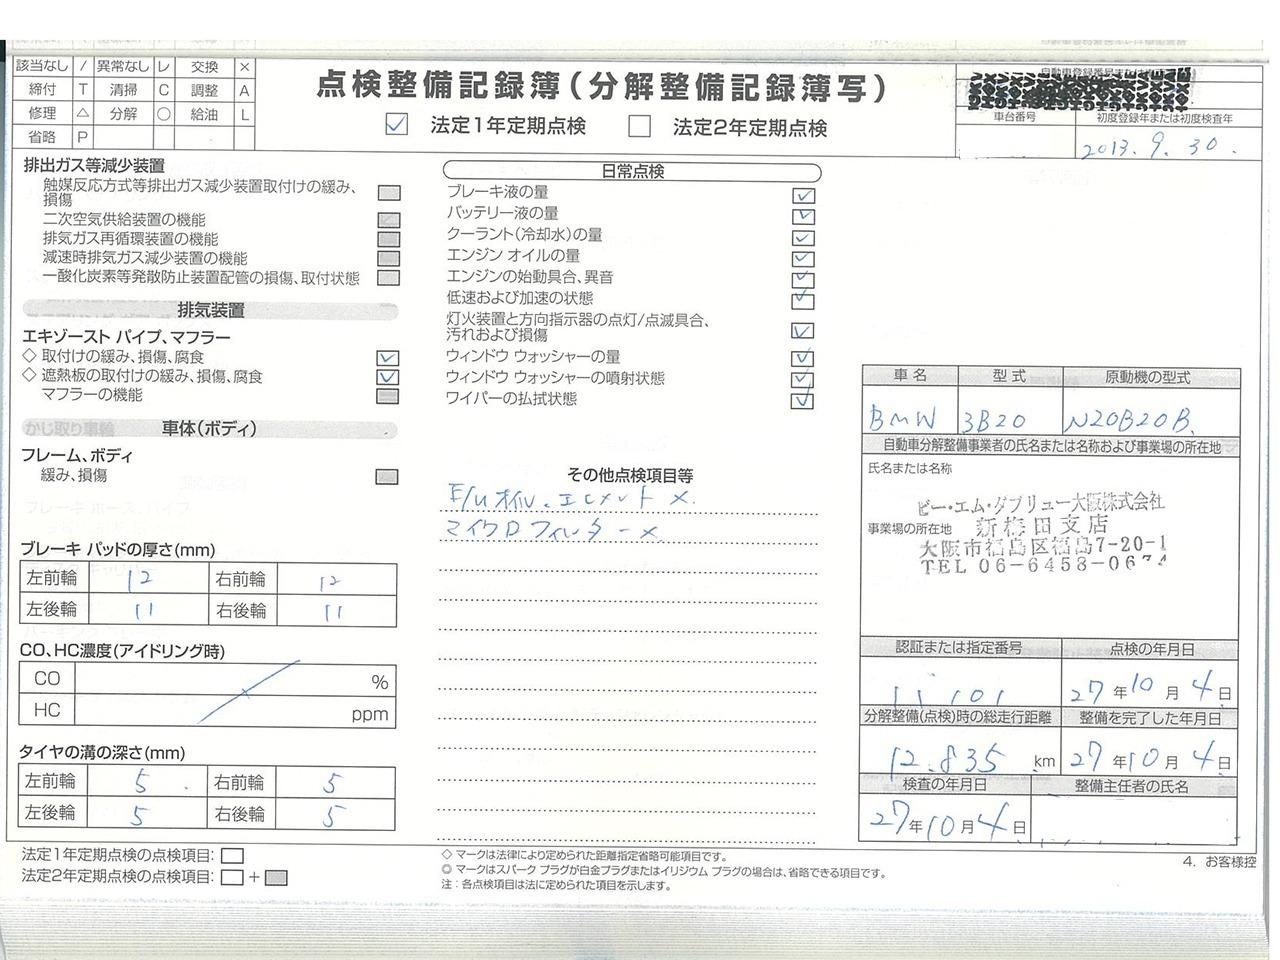 該当なし / 異常なし レ 交換 ×
締付 T 清掃 C 調整 A
修理 △ 分解 ○ 給油 L
省略 P
点検整備記録簿(分解整備記録簿写)
✓ 法定1年定期点検 法定2年定期点検
車台番号 初度登録年または初度検査年
2013. 9. 30.
排出ガス等減少装置
触媒反応方式等排出ガス減少装置取付けの緩み、
損傷
二次空気供給装置の機能
排気ガス再循環装置の機能
減速時排気ガス減少装置の機能
一酸化炭素等発散防止装置配管の損傷、取付状態
排気装置
エキゾースト パイプ、マフラー
◇ 取付けの緩み、損傷、腐食 ✓
◇ 遮熱板の取付けの緩み、損傷、腐食 ✓
マフラーの機能
車体(ボディ)
フレーム、ボディ
緩み、損傷
ブレーキ パッドの厚さ(mm)
左前輪 12 右前輪 12
左後輪 11 右後輪 11
CO、HC濃度(アイドリング時)
CO %
HC ppm
タイヤの溝の深さ(mm)
左前輪 5 右前輪 5
左後輪 5 右後輪 5
法定1年定期点検の点検項目:
法定2年定期点検の点検項目: +
日常点検
ブレーキ液の量 ✓
バッテリー液の量 ✓
クーラント(冷却水)の量 ✓
エンジン オイルの量 ✓
エンジンの始動具合、異音 ✓
低速および加速の状態 ✓
灯火装置と方向指示器の点灯/点滅具合、
汚れおよび損傷 ✓
ウィンドウ ウォッシャーの量 ✓
ウィンドウ ウォッシャーの噴射状態 ✓
ワイパーの払拭状態 ✓
その他点検項目等
オイル・エレメント ×.
マイクロフィルター ×
◇ マークは法律により定められた距離指定省略可能項目です。
◎ マークはスパーク プラグが白金プラグまたはイリジウム プラグの場合は、省略できる項目です。
注:各点検項目は法に定められた項目を示します。
車名 型式 原動機の型式
BMW 3B20 N20B20B
自動車分解整備事業者の氏名または名称および事業場の所在地
氏名または名称
ビー・エム・ダブリュー大阪株式会社
事業場の所在地 新梅田支店
大阪市福島区福島7-20-1
TEL 06-6458-
認証または指定番号 点検の年月日
27年10月4日
分解整備(点検)時の総走行距離 整備を完了した年月日
12.835 km 27年10月4日
検査の年月日 整備主任者の氏名
27年10月4日
4. お客様控